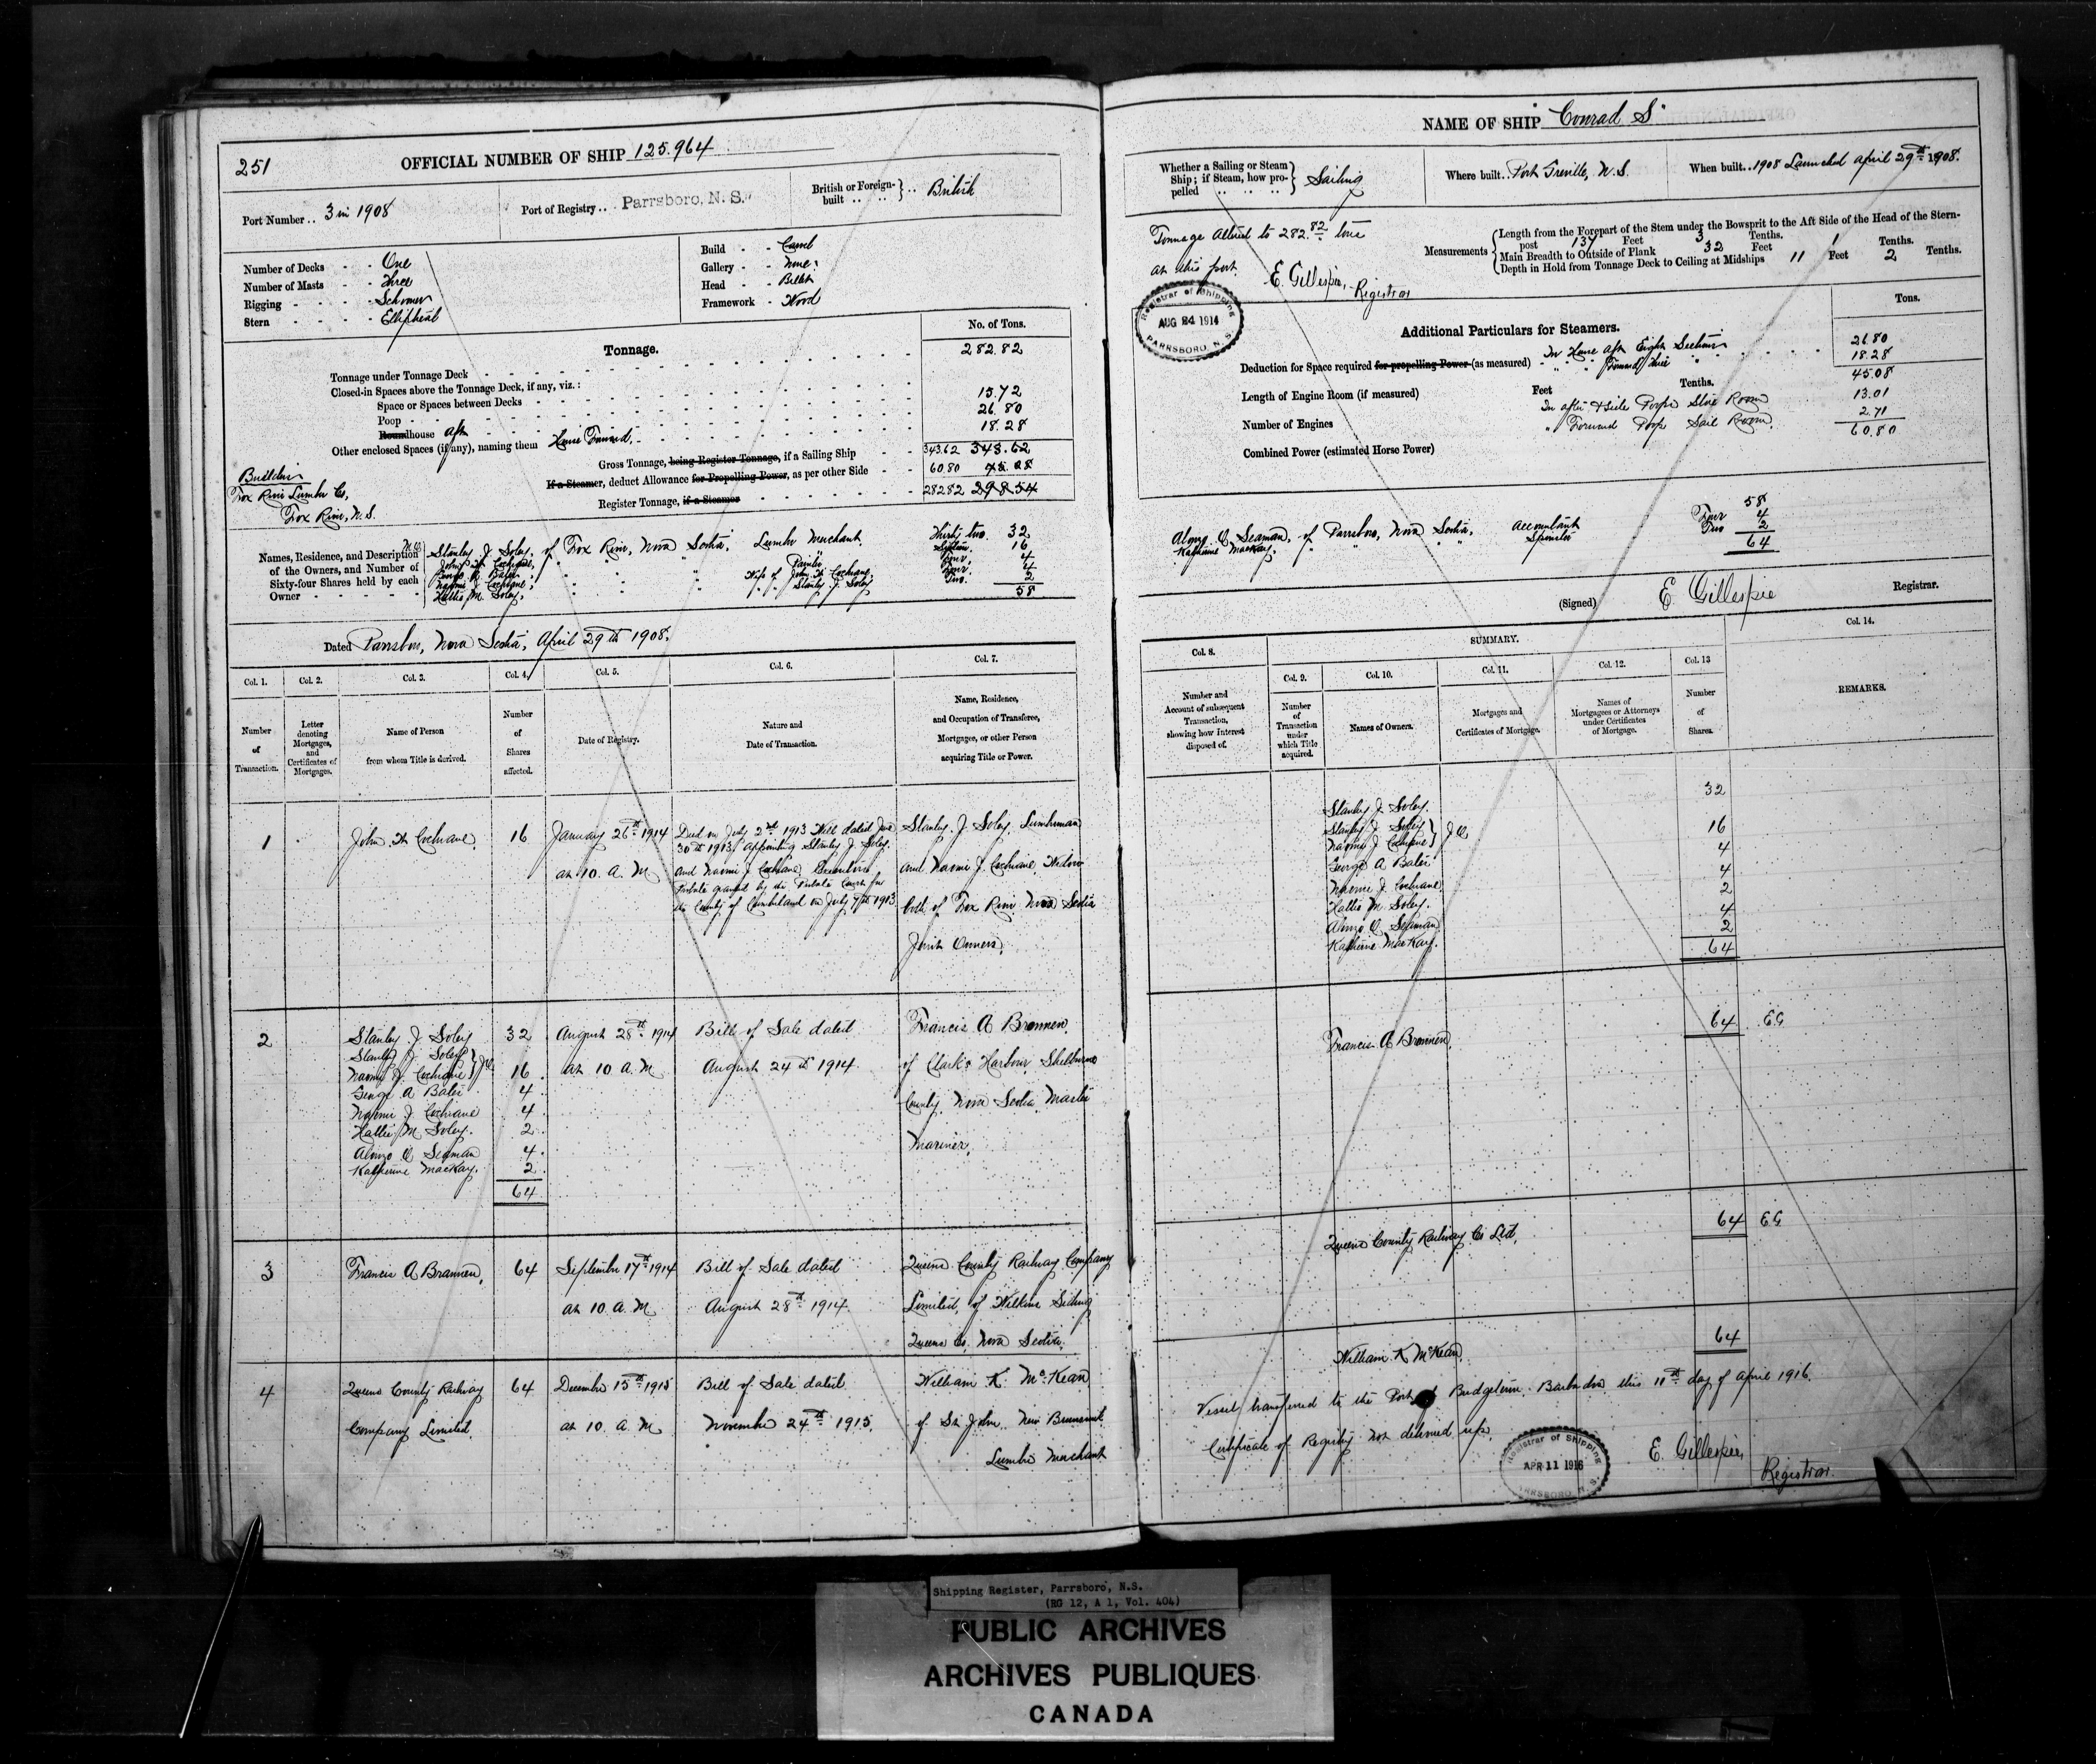 251
OFFICIAL NUMBER OF SHIP 125.964
Port Number .. 3 in 1908
Port of Registry .. Parrsboro, N. S.
British or Foreign-built .. British
Number of Decks - - One
Number of Masts - - Three
Rigging - - - - Schooner
Stern - - - - Elliptical
Build - - Carvel
Gallery - - None
Head - - Billet
Framework - Wood
Tonnage.
No. of Tons.
Tonnage under Tonnage Deck 282.82
Closed-in Spaces above the Tonnage Deck, if any, viz.:
Space or Spaces between Decks
Poop 15.72
Roundhouse aft 26.80
Other enclosed Spaces (if any), naming them House Forward. 18.28
Gross Tonnage, being Register Tonnage, if a Sailing Ship 343.62 343.62
If a Steamer, deduct Allowance for Propelling Power, as per other Side 60.80 45.08
Register Tonnage, if a Steamer 282 82 298 54
Builders
Fox River Lumber Co,
Fox River, N. S.
Names, Residence, and Description of the Owners, and Number of Sixty-four Shares held by each Owner
Stanley J. Soley, of Fox River, Nova Scotia, Lumber Merchant. Thirty two. 32
John H Cochrane, Sixteen. 16
George A Bates Four 4
Naomi J. Cochrane, Wife of John H Cochrane, Four 4
Hattie M. Soley, " " Stanley J. Soley Two. 2
58
Dated Parrsboro, Nova Scotia, April 29th 1908.
Col. 1. Col. 2. Col. 3. Col. 4. Col. 5. Col. 6. Col. 7.
Number of Transaction.
Letter denoting Mortgages, and Certificates of Mortgages.
Name of Person from whom Title is derived.
Number of Shares affected.
Date of Registry.
Nature and Date of Transaction.
Name, Residence, and Occupation of Transferee, Mortgagee, or other Person acquiring Title or Power.
1
John H Cochrane.
16
January 26th 1914
at 10. A. M
Died on July 2nd 1913 Will dated June
30th 1913 appointing Stanley J. Soley
and Naomi J Cochrane Executors
Probate granted by the Probate Court for
the County of Cumberland on July 7th 1913
Stanley. J. Soley, Lumberman
and Naomi J. Cochrane, Widow
both of Fox River Nova Scotia
Joint Owners.
2
Stanley J Soley 32
Stanley J Soley
Naomi J. Cochrane } J.O. 16
George A Bates 4
Naomi J Cochrane 4
Hattie M Soley. 2
Alonzo O Seaman 4
Katherine MacKay. 2
64
August 28th 1914
at 10 A. M
Bill of Sale dated
August 24th 1914.
Francis A Brannen.
of Clark's Harbour Shelburne
County, Nova Scotia, Master
Mariner.
3
Francis A Brannen,
64
September 17th 1914
at 10. A. M
Bill of Sale dated
August 28th 1914.
Queens County Railway Company
Limited, of Wilkins Siding
Queens Co. Nova Scotia.
4
Queens County Railway
Company Limited.
64
December 15th 1915
at 10. A. M
Bill of Sale dated
November 24th 1915.
William K. McKean
of St. John New Brunswick
Lumber Merchant
NAME OF SHIP Conrad S.
Whether a Sailing or Steam Ship; if Steam, how propelled Sailing
Where built .. Port Greville, N. S.
When built .. 1908 Launched April 29th 1908.
Tonnage Altered to 282.82 tons
at this port
E. Gillespie, Registrar
Registrar of Shipping
AUG 24 1914
PARRSBORO, N. S.
Measurements
Length from the Forepart of the Stem under the Bowsprit to the Aft Side of the Head of the Stern-post 137 Feet 3 Tenths.
Main Breadth to Outside of Plank 32 Feet 1 Tenths.
Depth in Hold from Tonnage Deck to Ceiling at Midships 11 Feet 2 Tenths.
Additional Particulars for Steamers.
Tons.
Deduction for Space required for propelling Power (as measured) - In House Aft Eight Sections 26.80
" " Forward Three " 18.28
45.08
Length of Engine Room (if measured) Feet Tenths.
In after & side Poop Store Room 13.01
Number of Engines " Forward Poop Sail Room. 2.71
60.80
Combined Power (estimated Horse Power)
58
Alonzo O Seaman, of Parrsboro, Nova Scotia, Accountant Four 4
Katherine MacKay, " " " " Spinster Two 2
64
(Signed) E. Gillespie Registrar.
Col. 8. SUMMARY. Col. 14.
Col. 9. Col. 10. Col. 11. Col. 12. Col. 13
Number and Account of subsequent Transaction, showing how Interest disposed of.
Number of Transaction under which Title acquired.
Names of Owners.
Mortgages and Certificates of Mortgage.
Names of Mortgagees or Attorneys under Certificates of Mortgage.
Number of Shares.
REMARKS.
Stanley J. Soley. 32
Stanley J Soley
Naomi J. Cochrane } J.O. 16
George A Bates 4
Naomi J. Cochrane 4
Hattie M Soley. 2
Alonzo O Seaman 4
Katherine MacKay. 2
64
Francis A Brannen. 64 E.G
Queens County Railway Co Ltd. 64 E.G
William K McKean. 64
Vessel transferred to the Port of Bridgetown Barbados this 11th day of April 1916.
Certificate of Registry not delivered up.
E. Gillespie,
Registrar.
Registrar of Shipping
APR 11 1916
PARRSBORO, N. S.
Shipping Register, Parrsboro, N.S.
(RG 12, A 1, Vol. 404)
PUBLIC ARCHIVES
ARCHIVES PUBLIQUES
CANADA